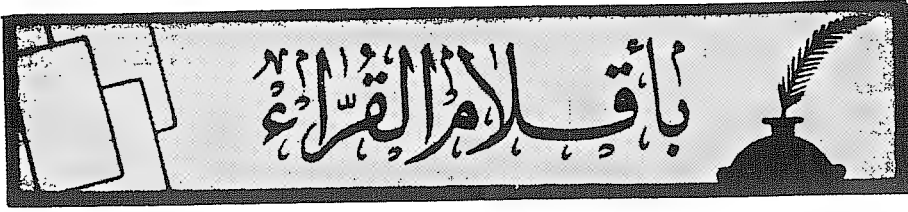 بأقلام القُرّاءْ